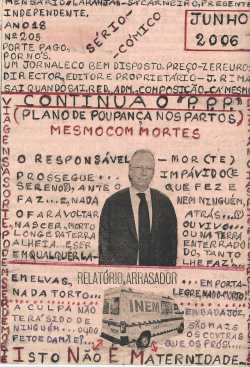 MENSÁRIO/LARANJAS/S/CARNEIRO, PRESENTE
INDEPENDENTE,
ANO 18
Nº 205
PORTE PAGO,
POR NÓS.
SÉRIO-
CÓMICO
JUNHO
2006
UM JORNALECO BEM DISPOSTO. PREÇO-ZEREUROS
DIRECTOR, EDITOR E PROPRIETÁRIO-J. RIM
SAI QUANDO SAI. RED. ADM. COMPOSIÇÃO CÁ MESMO
CONTINUA O "P.P.P."
(PLANO DE POUPANÇA NOS PARTOS)
MESMO COM MORTES
O RESPONSÁVEL-MOR(TE)
PROSSEGUE... IMPÁVIDO(E
SERENO), ANTE O QUE FEZ E
FAZ...E, NADA NEM NINGUÉM,
O FARÁ VOLTAR ATRÁS...
NASCER, MORTO OU VIVO...
LONGE DA TERRA
ALHEIA... E, SER ENTERRADO
EM QUALQUER LA TANTO
LHE FAZ...
RELATÓRIO ARRASADOR
INEM
EM ELVAS,
NADA TORTO...
A CULPA NÃO
TERÁ SIDO DE
NINGUÉM...
EM PORTA-
LEGRE, NADO MORTO
EM BADAJOZ,
SÃO MAIS
OS CONTRAS
QUE OS PRÓS!...
ISTO NÃO É MATERNIDADE